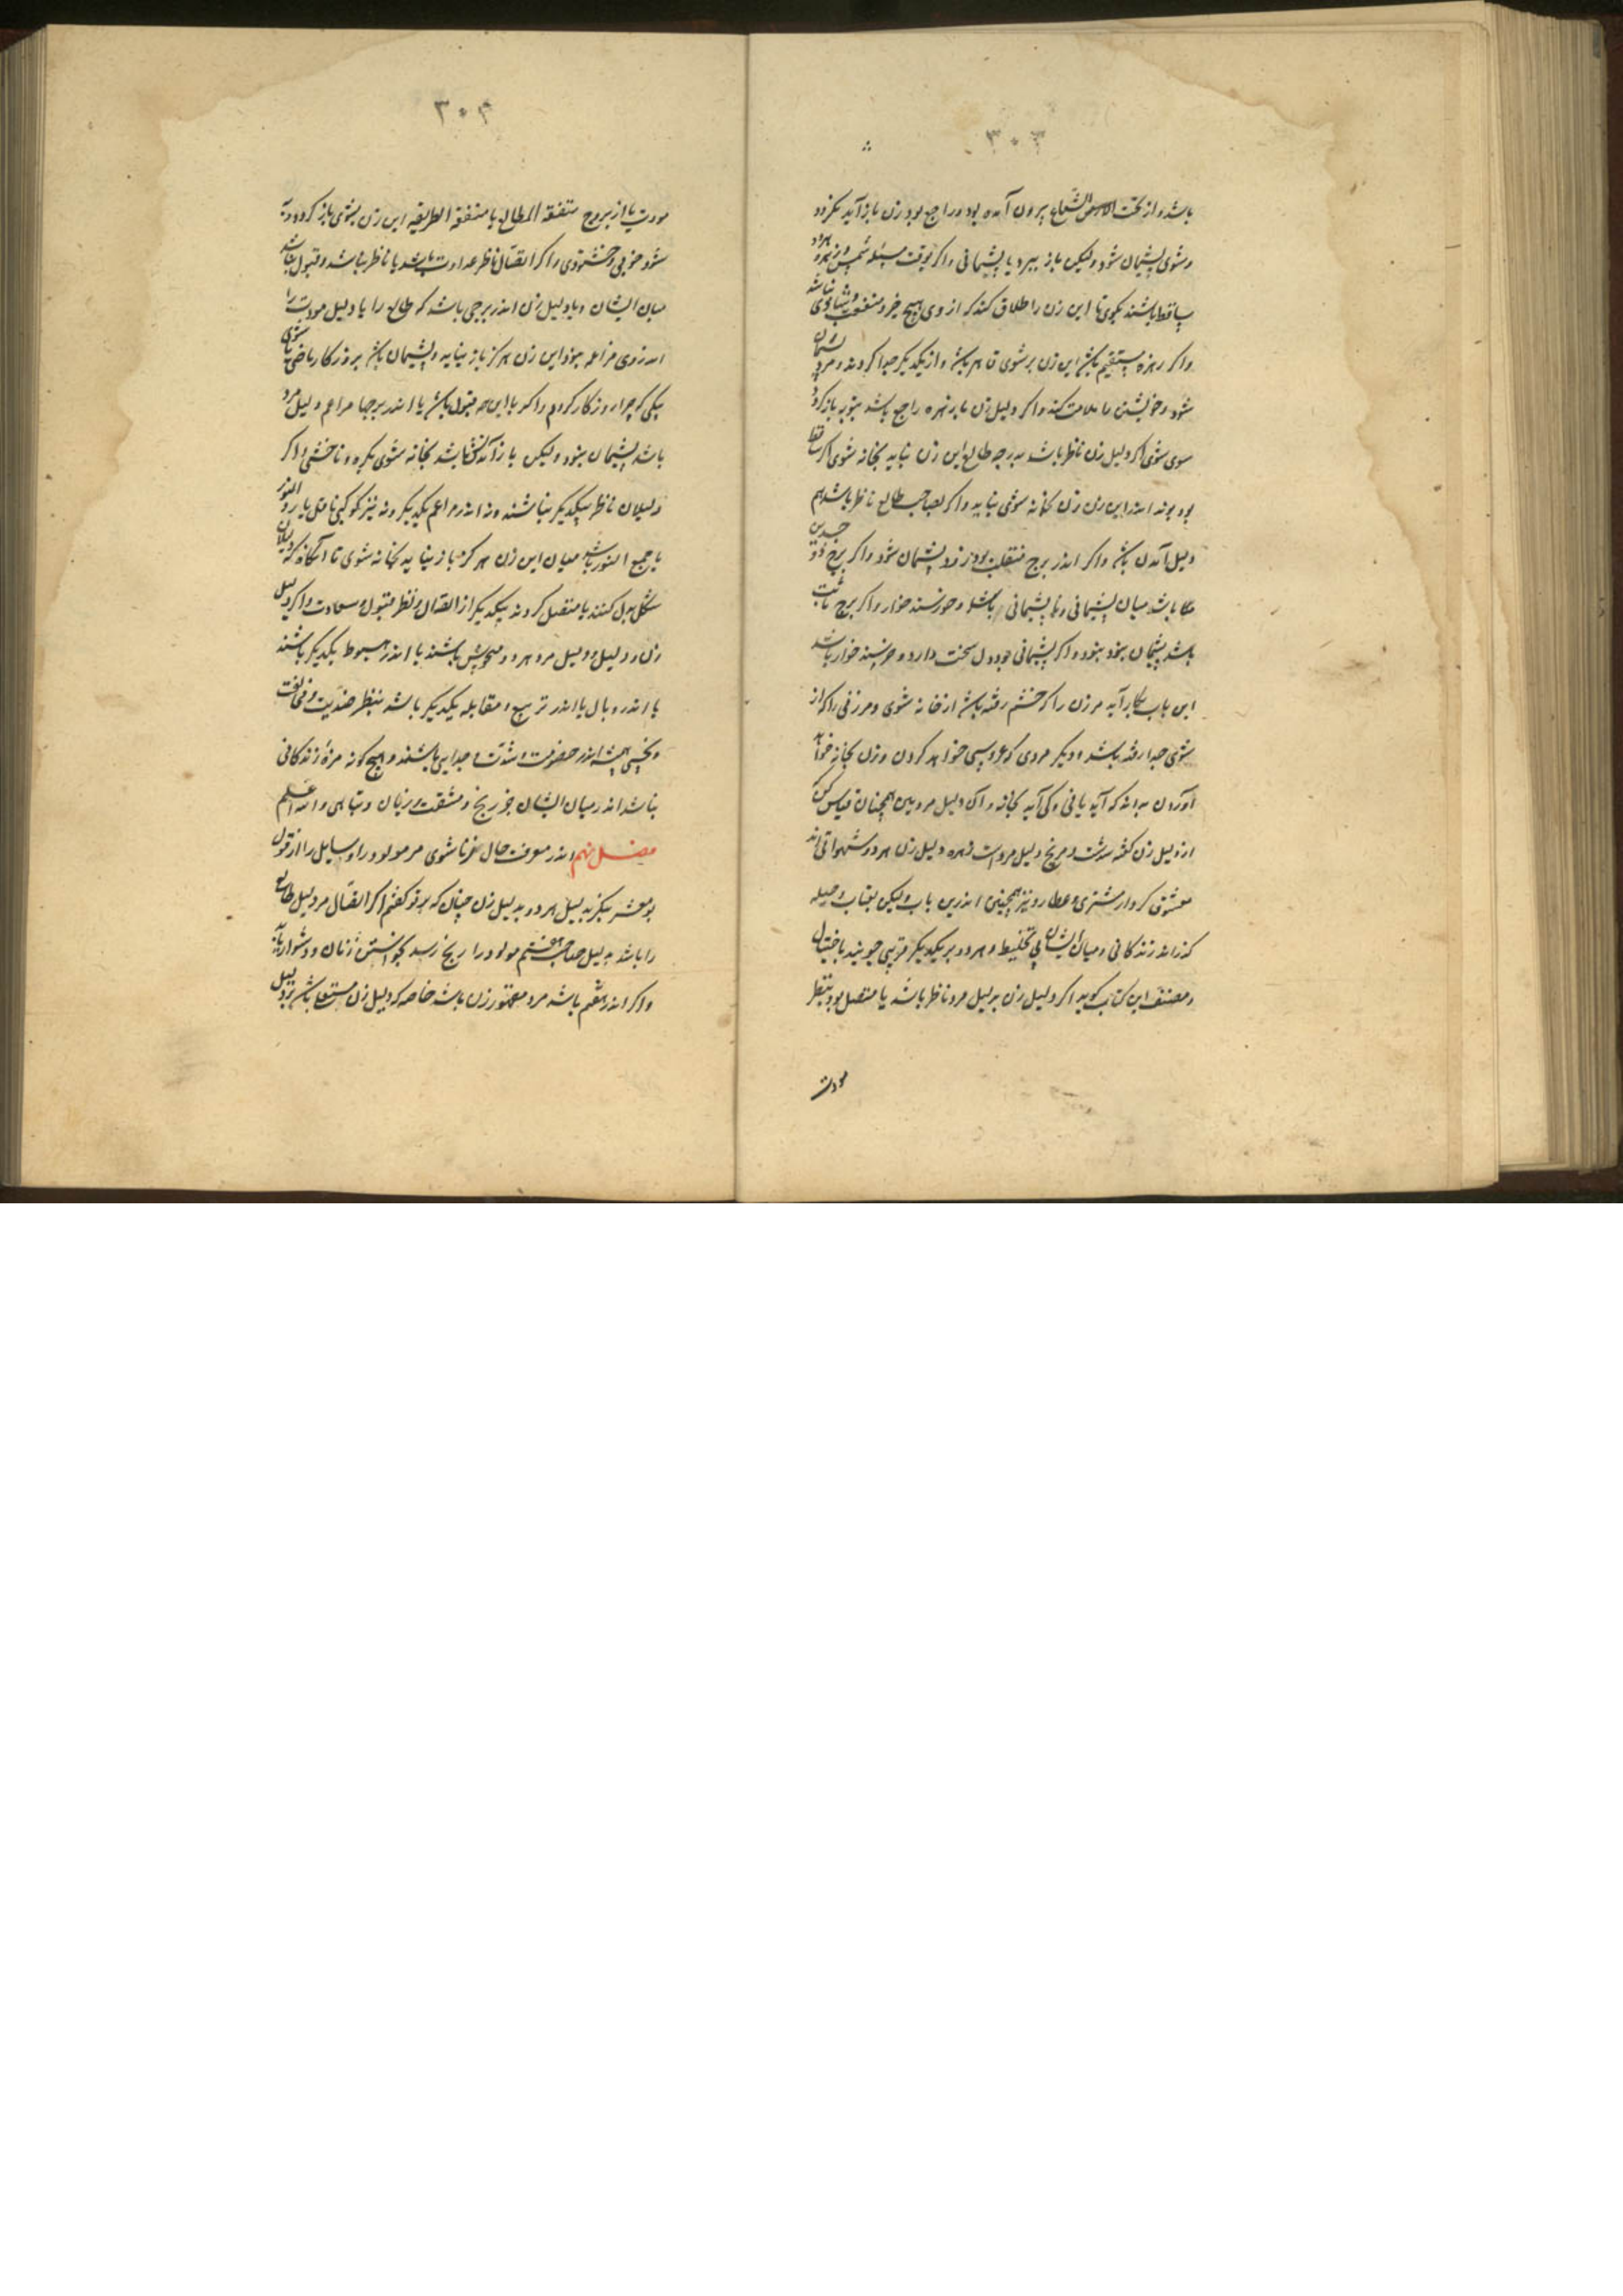 ۳۰۳
باشد و از تحت الشعاع بیرون آمده بود و راجع بود زن باز آید بگردد
و شوی پشیمان شود ولیکن باز پیرد با پشیمانی و اگر بوقت مسئله شمس و زهره هر دو
ساقط باشند بگوی تا این زن را طلاق کند که از وی هیچ خیر و منفعت و شادی نباشد
واگر زهره مستقیم باشد این زن بر شوی قاهر باشد و از یکدیگر جدا گردند و مرد پشیمان
شود و خویشتن را ملامت کند و اگر دلیل زن یا زهره راجع باشد بتوبه باز گردد
سوی شوی اگر دلیل زن ناظر باشد بدرجه طالع این زن بیاید بخانه شوی اگر ساقط
بود بوند اندر این زن بخانه شوی نیاید و اگر بصاحب طالع ناظر باشد هم
دلیل آمدن باشد و اگر اندر برج منقلب بود زود پشیمان شود و اگر برج ذو جسدین
باشد میان پشیمانی و ناپشیمانی باشد و خورسند خوار و اگر برج ثابت
باشد پشیمان نبود و اگر پشیمانی بود دل سخت دارد و خرسند خوار باشد
این باب بکار آید مر زن را که خشم رفته باشد از خانه شوی و مر زنی را که از
شوی جدا رفته باشد و دیگر مردی که عروسی خواهد کردن و زن بخانه خواهد
آوردن بداند که آید یا نی و کی آید بخانه و آن دلیل مرد بین همچنان قیاس کن
از دلیل زن گفته شدست و مریخ دلیل مردست زهره دلیل زن هر دو شهوانی اند
معشوق کردار مشتری و عطارد نیز همچنین اندرین باب ولیکن بعتاب و حیله
گذرانند زندگانی و میان ایشان بی تخلیط و هر دو بر یکدیگر مزیتی جویند باختیال
و مصنف این کتاب گوید اگر دلیل زن بدلیل مرد ناظر باشد یا متصل بود بنظر
مودت
۳۰۴
مودت یا از بروج متفقة المطالع یا متفقة الطریقه این زن بشوی باز گردد و
شود خوبی و خشنودی و اگر اتصال ناظر عداوت باشد یا ناظر نباشد و قبول نباشد
میان ایشان و یا دلیل زن اندر برجی باشد که طالع را یا دلیل مودت را
اندر وی مزاعمه بود این زن هرگز باز نیاید و پشیمان باشد بروزگار ماضی با شوی
یکی که چرا روزگار کردم و اگر با این همه قبول باشد یا اندر برجها مزاعم دلیل مرد
باشد پشیمان نبود ولیکن باز آمدنش باشد بخانه شوی بکره و ناخوشی و اگر
دلیلان ناظر بیکدیگر نباشند و نه اندر مزاعم یکدیگر و نه نیز کوکبی ناقل یا رد النور
یا جمع النور باشد میان این زن هرگز باز نیاید بخانه شوی تا آنگاه که دلیلان
شکل بدل کنند یا متصل گردند بیکدیگر از اتصال و نظر مقبول و سعادت و اگر دلیل
زن و دلیل مرد هر دو منحوس باشند یا اندر هبوط یکدیگر باشند
یا اندر وبال یا اندر تربیع و مقابله یکدیگر باشد بنظر ضدیت و مخالفت
و نحسی همیشه اندر خصومت و شدت و جدایی باشند و هیچ گونه مزه زندگانی
نباشد اندر میان ایشان جز رنج و مشقت و زیان و تباهی والله اعلم
فصل نهم اندر معرفت حال زناشوی مر مولود را و سایل را از قول
بو معشر بنگر بدلیل مرد و بدلیل زن چنان که بر تو گفتم اگر اتصال مر دلیل طالع
را باشد بدلیل صاحب هفتم مولود را رنج رسد بخواستن زنان و دشوار یابد
و اگر اندر هفتم باشد مرد مقهور زن باشد خاصه که دلیل زن مستعلی باشد بر دلیل